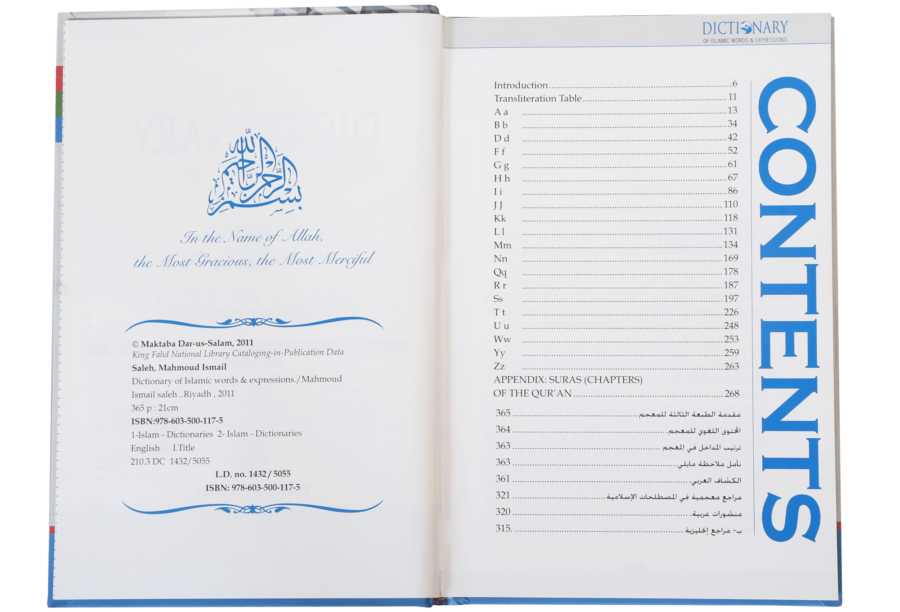 بسم الله الرحمن الرحيم
In the Name of Allah,
the Most Gracious, the Most Merciful
© Maktaba Dar-us-Salam, 2011
King Fahd National Library Cataloging-in-Publication Data
Saleh, Mahmoud Ismail
Dictionary of Islamic words & expressions./Mahmoud
Ismail saleh ..Riyadh , 2011
365 p : 21cm
ISBN:978-603-500-117-5
1-Islam - Dictionaries 2- Islam - Dictionaries
English I.Title
210.3 DC 1432/5055
L.D. no. 1432/5055
ISBN: 978-603-500-117-5
DICTIONARY
OF ISLAMIC WORDS & EXPRESSIONS
CONTENTS
Introduction 6
Transliteration Table 11
A a 13
B b 34
D d 42
F f 52
G g 61
H h 67
I i 86
J J 110
Kk 118
L l 131
Mm 134
Nn 169
Qq 178
R r 187
Ss 197
T t 226
U u 248
Ww 253
Yy 259
Zz 263
APPENDIX: SURAS (CHAPTERS)
OF THE QUR'AN 268
مقدمة الطبعة الثالثة للمعجم 365
المحتوى اللغوي للمعجم 364
ترتيب المداخل في المعجم 363
تأمل ملاحظة مايلي 363
الكشاف العربي 361
مراجع معجمية في المصطلحات الإسلامية 321
منشورات عربية 320
ب- مراجع إنجليزية 315